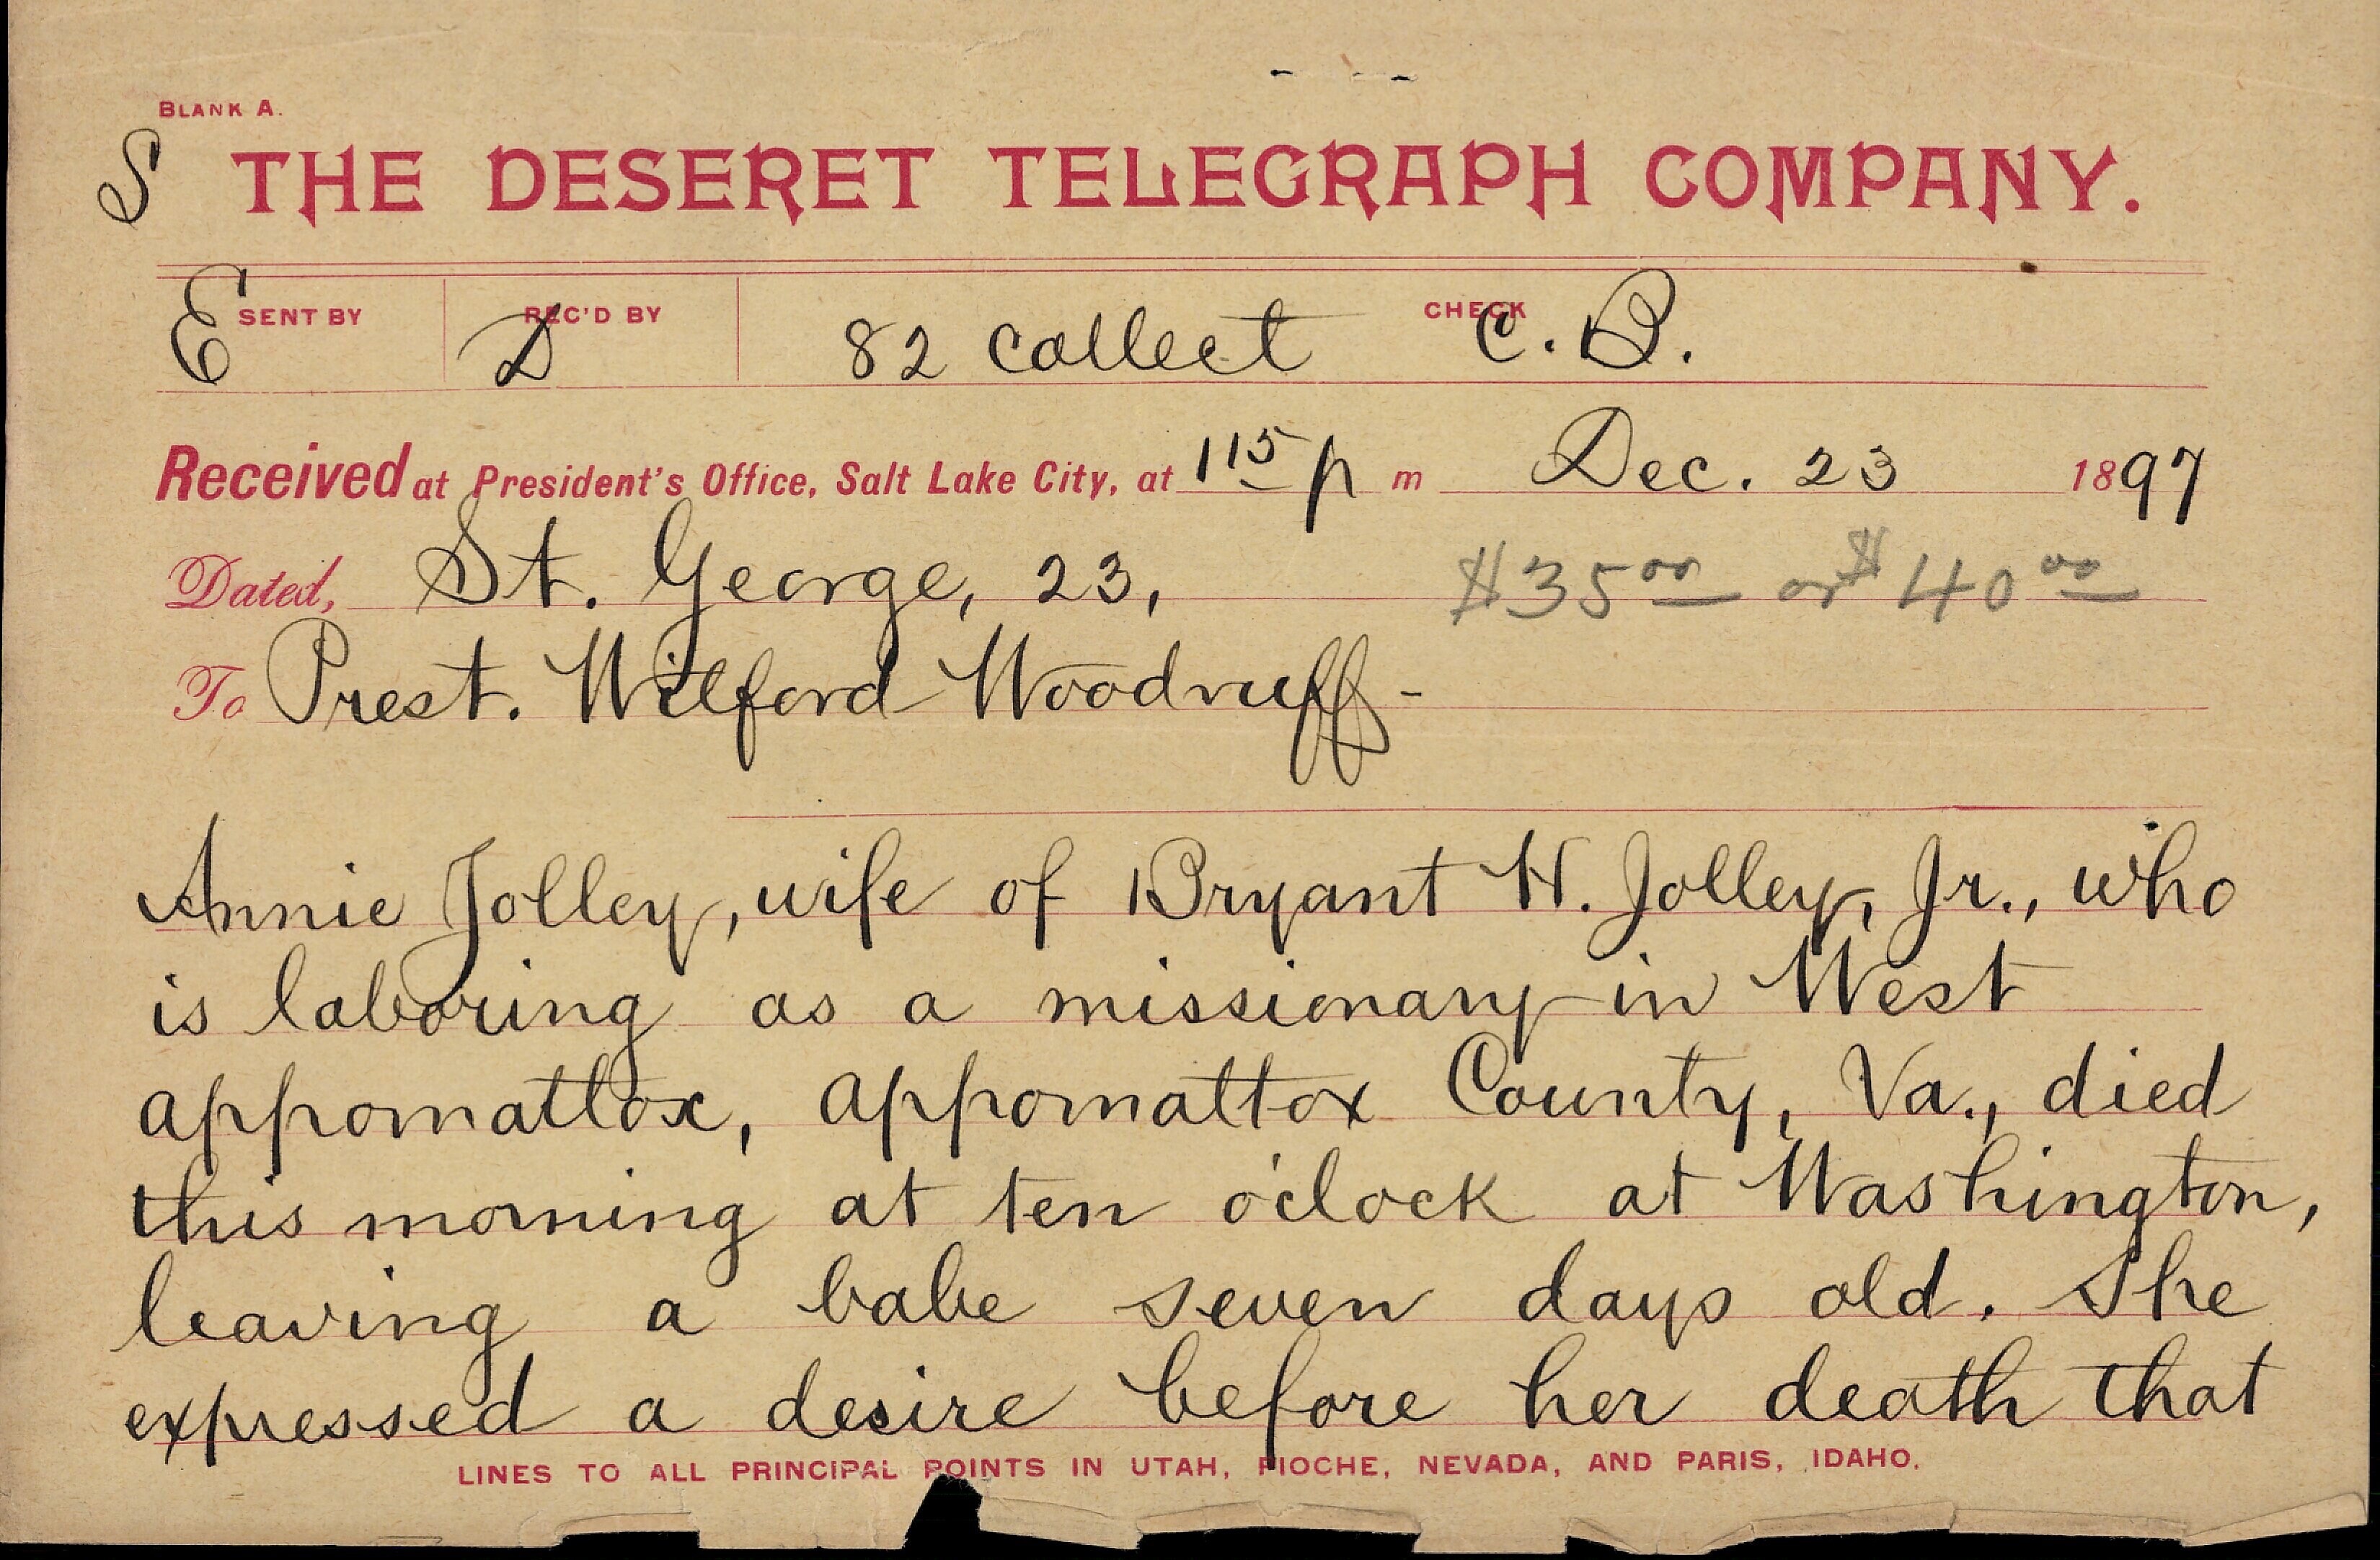 BLANK A.
S THE DESERET TELEGRAPH COMPANY.
E SENT BY D REC'D BY 82 collect CHECK C. B.
Received at President's Office, Salt Lake City, at 1 15 p m Dec. 23 1897
Dated, St. George, 23, $35 00 or $40 00
To Prest. Wilford Woodruff-
Annie Jolley, wife of Bryant H. Jolley, Jr., who
is laboring as a missionary in West
appomattox, appomattox County, Va., died
this morning at ten o'clock at Washington,
leaving a babe seven days old. She
expressed a desire before her death that
LINES TO ALL PRINCIPAL POINTS IN UTAH, PIOCHE, NEVADA, AND PARIS, IDAHO.